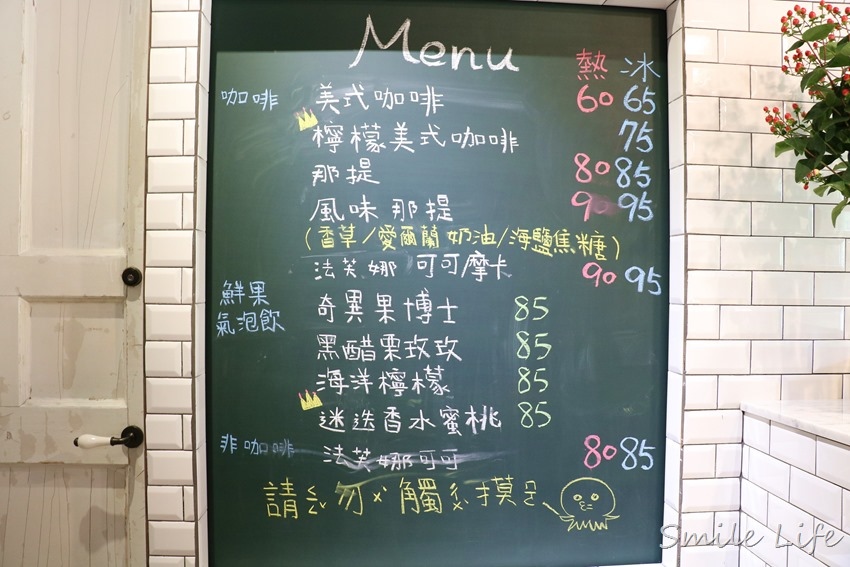 Menu
熱 冰
咖啡 美式咖啡 60 65
檸檬美式咖啡 75
那提 80 85
風味那提 90 95
(香草/愛爾蘭奶油/海鹽焦糖)
法芙娜 可可摩卡 90 95
鮮果氣泡飲 奇異果博士 85
黑醋栗玫玫 85
海洋檸檬 85
迷迭香水蜜桃 85
非咖啡 法芙娜可可 80 85
請勿觸摸
Smile Life